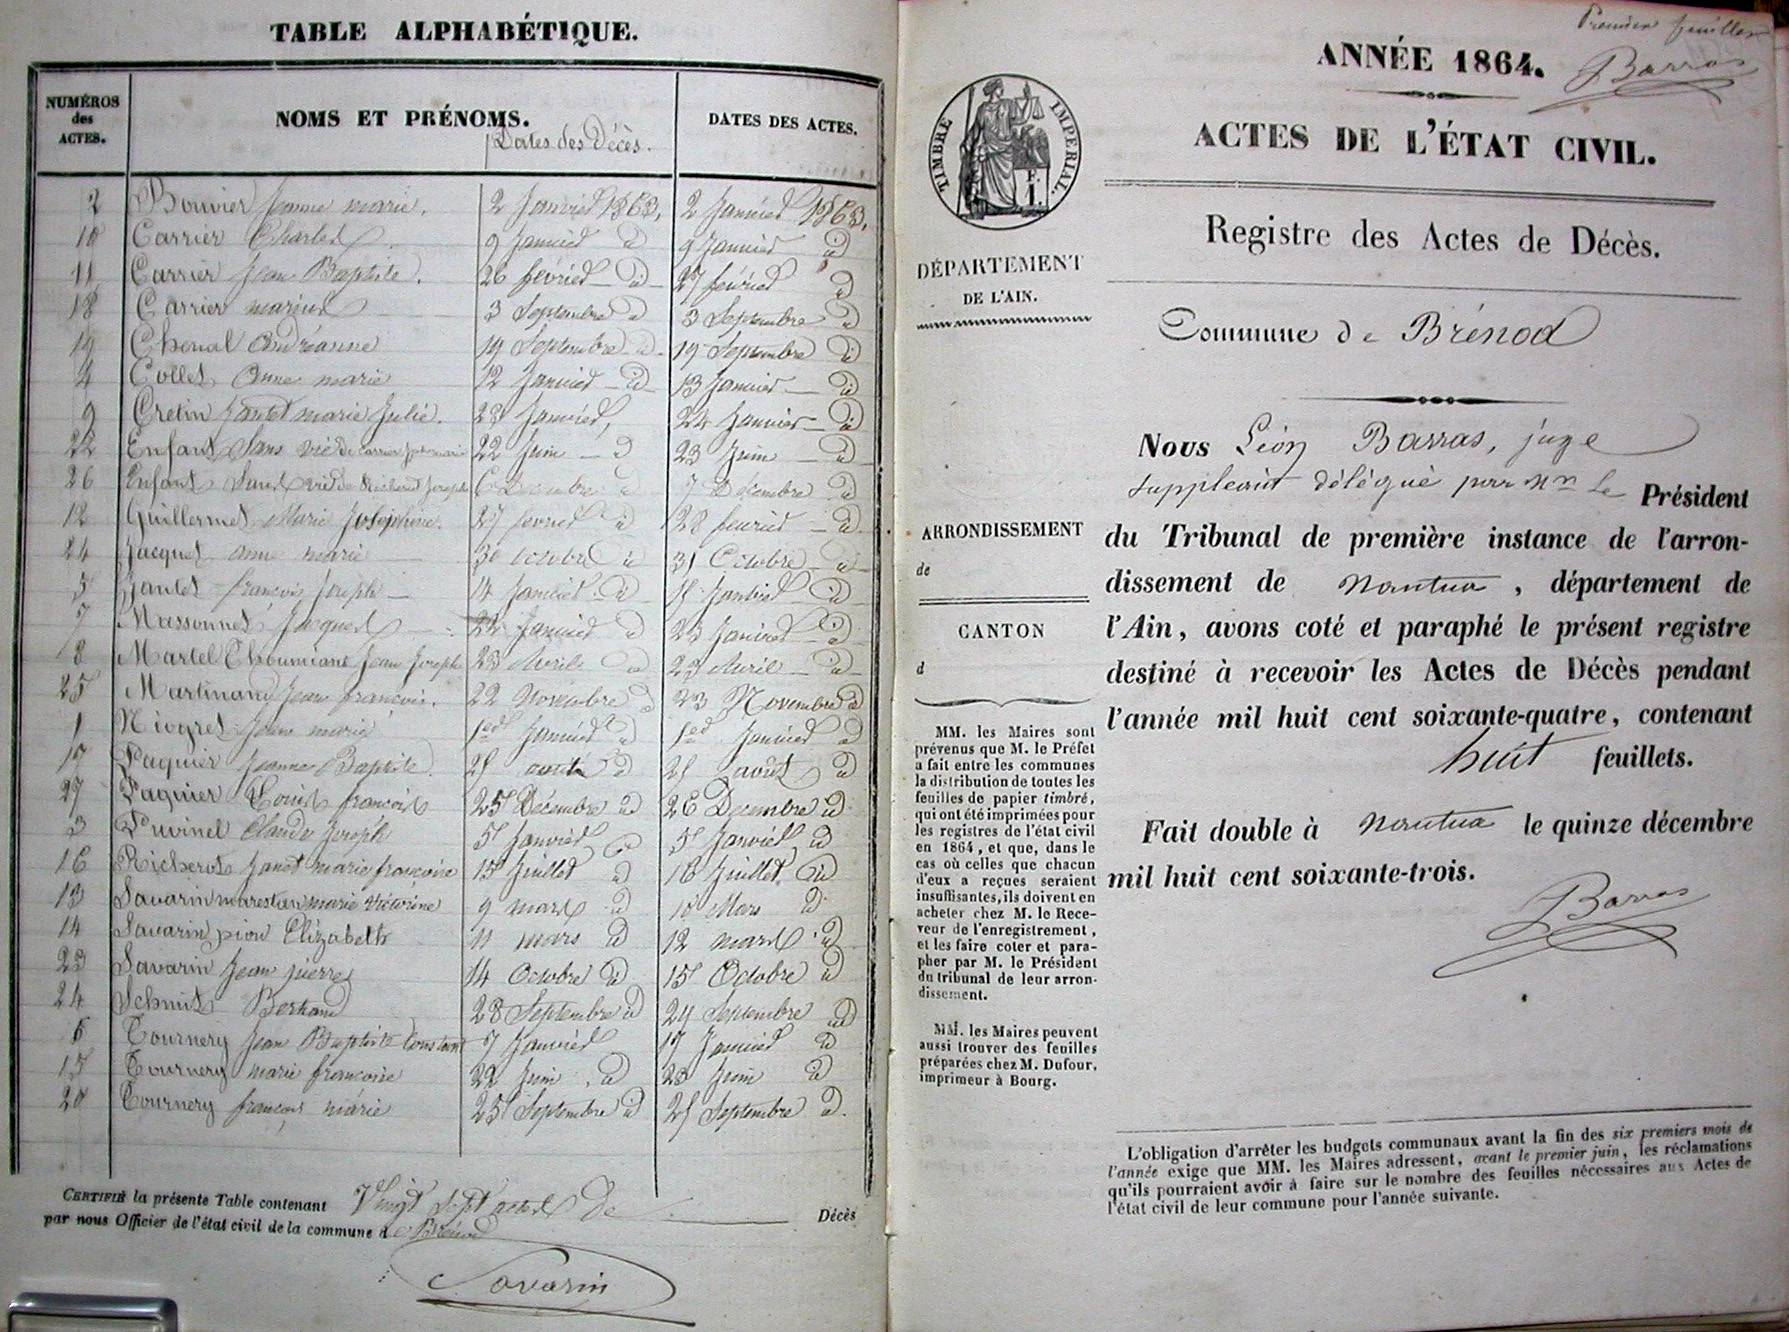 TABLE ALPHABÉTIQUE.
NUMÉROS des ACTES.
NOMS ET PRÉNOMS.
Dates des Décès.
DATES DES ACTES.
2 Bouvier Jeanne marie. 2 Janvier 1863, 2 Janvier 1863,
10 Carrier Charles 9 Janvier id 9 Janvier id
11 Carrier Jean Baptiste. 26 février id 27 février id
18 Carrier marius 3 Septembre id 3 Septembre id
19 Chenal Andréanne 19 Septembre id 19 Septembre id
4 Collet Anne marie 12 Janvier id 13 Janvier id
9 Cretin Jantet marie Julie. 23 Janvier, 24 Janvier id
22 Enfant Sans vie de Carrier 22 Juin id 23 Juin id
26 Enfant Sans vie de Joseph 6 Décembre id 7 Décembre id
12 Guillermet Marie Joséphine. 27 février id 28 février id
24 Jacquet anne marie 30 octobre id 31 Octobre id
5 Jantet françois Joseph 14 Janvier id 15 Janvier id
7 Massonnet Jacques 22 Janvier id 23 Janvier id
8 Martel Thoumiant Jean Joseph 23 Avril id 23 Avril id
25 Martinand Jean françois. 22 Novembre id 23 Novembre id
1 Niogret Jean marie 1er Janvier id 1er Janvier id
17 Paquier Jeanne Baptiste. 25 août id 25 août id
27 Paquier Louis françois 25 Décembre id 26 Décembre id
3 Puvinel Claude Joseph 5 Janvier id 5 Janvier id
16 Richerot Janet marie françoise 15 Juillet id 16 Juillet id
13 Savarin marestan marie victorine 9 mars id 10 Mars id
14 Savarin pion Elizabeth 11 mars id 12 mars id
23 Savarin Jean pierre 14 Octobre id 15 Octobre id
24 Schmit Bertrand 28 Septembre id 29 Septembre id
6 Tournery Jean Baptiste Constant 7 Janvier 17 Janvier id
15 Tournery marie françoise 22 Juin id 23 Juin id
20 Tournery françois marie 25 Septembre id 25 Septembre id.
CERTIFIÉ la présente Table contenant Vingt sept actes de Décès
par nous Officier de l'état civil de la commune d Brénod
Savarin
Premier feuillet
Barras
ANNÉE 1864.
TIMBRE IMPÉRIAL.
ACTES DE L'ÉTAT CIVIL.
Registre des Actes de Décès.
DÉPARTEMENT
DE L'AIN.
Commune de Brénod
ARRONDISSEMENT
de
CANTON
d
MM. les Maires sont
prévenus que M. le Préfet
a fait entre les communes
la distribution de toutes les
feuilles de papier timbré,
qui ont été imprimées pour
les registres de l'état civil
en 1864, et que, dans le
cas où celles que chacun
d'eux a reçues seraient
insuffisantes, ils doivent en
acheter chez M. le Rece-
veur de l'enregistrement,
et les faire coter et para-
pher par M. le Président
du tribunal de leur arron-
dissement.
MM. les Maires peuvent
aussi trouver des feuilles
préparées chez M. Dufour,
imprimeur à Bourg.
Nous Léon Barras, juge
suppléant délégué par Mr Le Président
du Tribunal de première instance de l'arron-
dissement de Nantua, département de
l'Ain, avons coté et paraphé le présent registre
destiné à recevoir les Actes de Décès pendant
l'année mil huit cent soixante-quatre, contenant
huit feuillets.
Fait double à Nantua le quinze décembre
mil huit cent soixante-trois.
Barras
L'obligation d'arrêter les budgets communaux avant la fin des six premiers mois de
l'année exige que MM. les Maires adressent, avant le premier juin, les réclamations
qu'ils pourraient avoir à faire sur le nombre des feuilles nécessaires aux Actes de
l'état civil de leur commune pour l'année suivante.